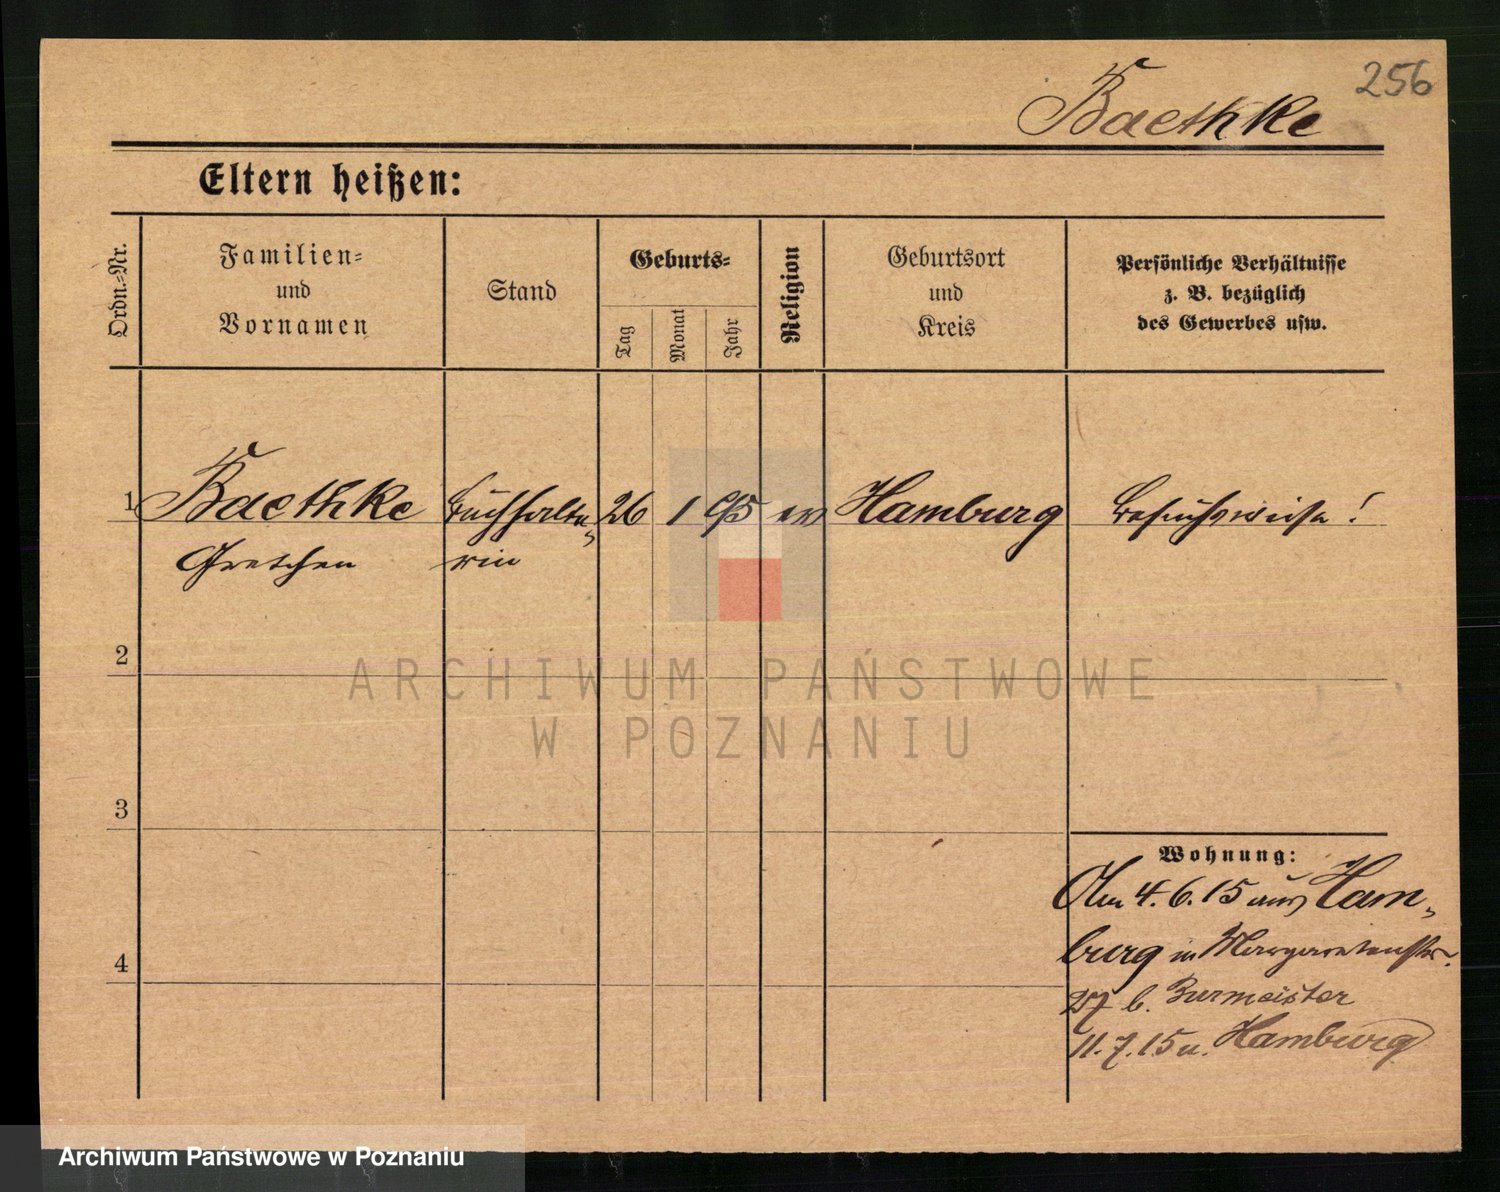 256
Baethke
Eltern heißen:
Ordn.-Nr.
Familien-
und
Vornamen
Stand
Geburts-
Tag
Monat
Jahr
Religion
Geburtsort
und
Kreis
Persönliche Verhältnisse
z. B. bezüglich
des Gewerbes usw.
1 Baethke Buchhalte- 26 1 95 ev Hamburg Besuchsweise!
Gretchen rin
2
ARCHIWUM PAŃSTWOWE
W POZNANIU
3
Wohnung:
Am 4.6.15 aus Ham-
4
burg in Margaretenstr.
27 b. Burmeister
11.7.15 n. Hamburg
Archiwum Państwowe w Poznaniu